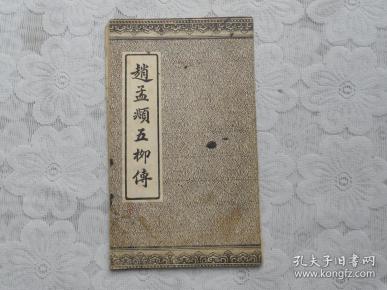 趙孟頫五柳傳
孔夫子旧书网
www.kongfz.com